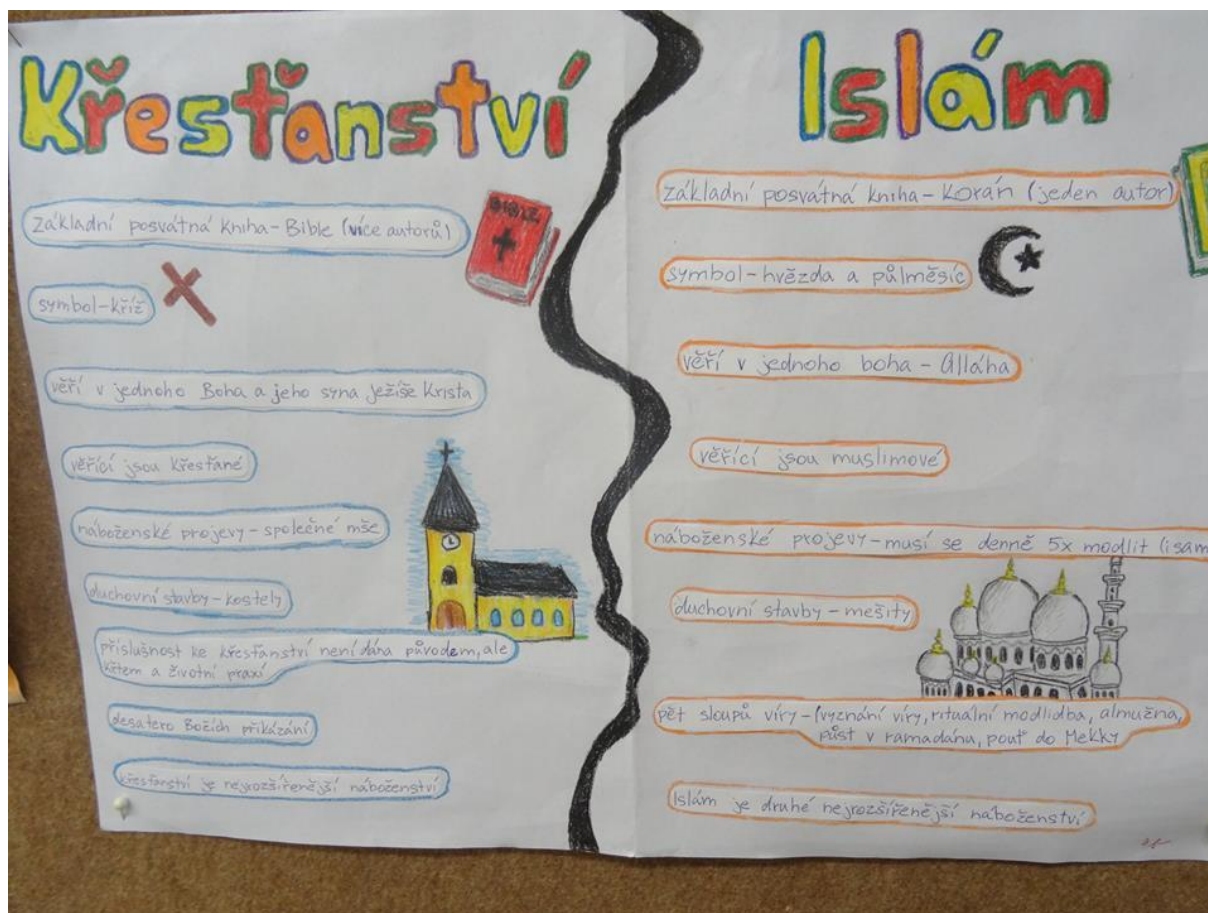 Křesťanství
základní posvátná kniha - Bible (více autorů)
BIBLE
symbol - kříž
věří v jednoho Boha a jeho syna Ježíše Krista
věřící jsou křesťané
náboženské projevy - společné mše
duchovní stavby - kostely
příslušnost ke křesťanství není dána původem, ale
křtem a životní praxí
desatero Božích přikázání
křesťanství je nejrozšířenější náboženství
Islám
základní posvátná kniha - Korán (jeden autor)
symbol - hvězda a půlměsíc
věří v jednoho boha - Alláha
věřící jsou muslimové
náboženské projevy - musí se denně 5x modlit (i sam
duchovní stavby - mešity
pět sloupů víry - (vyznání víry, rituální modlidba, almužna,
půst v ramadánu, pouť do Mekky
Islám je druhé nejrozšířenější náboženství